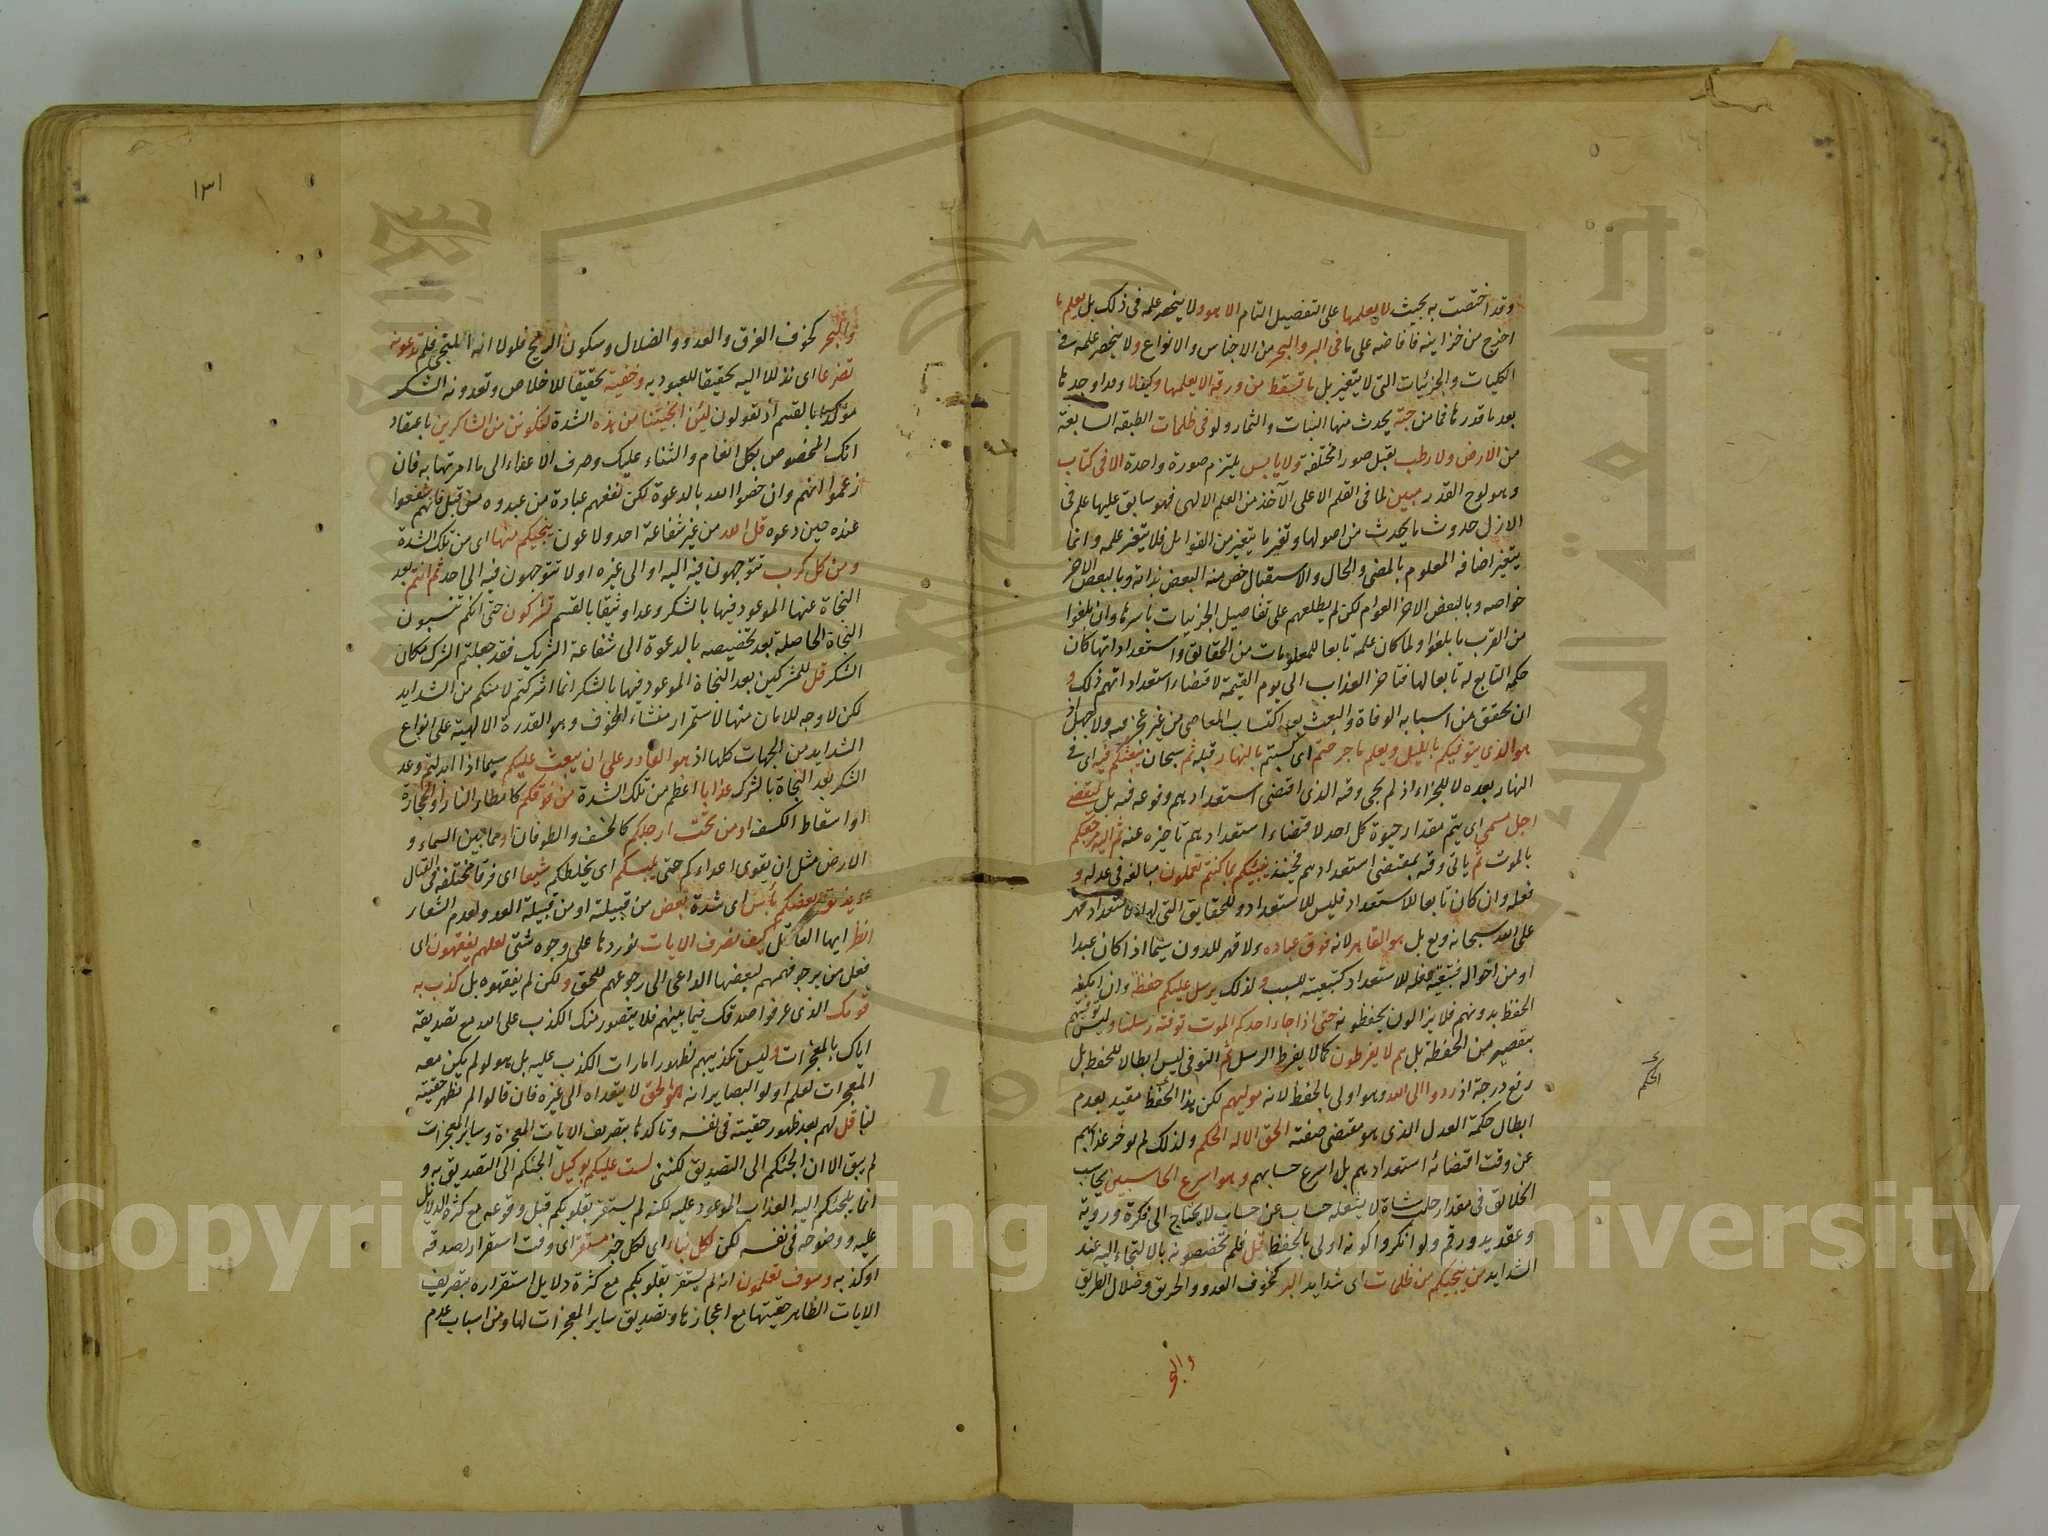 وقد اختصت به بحيث لا يعلمها على التفصيل التام الا هو ولا ينحصر علمه فى ذلك بل يعلم ما
اخرج من خزاينه فافاضه على ما فى البر والبحر من الاجناس والانواع ولا ينحصر علمه فى
الكليات والجزئيات التى لا يتغير بل ما تسقط من ورقة الا يعلمها وكيف لا وهو اوجدها
بعد ما قدرها فما من حبة يحدث منها النبات والثمار ولو فى ظلمات الطبقة السابعة
من الارض ولا رطب يقبل صورا مختلفة ولا يابس يلتزم صورة واحدة الا فى كتاب
وهو لوح القدر مبين لما فى القلم الاعلى الآخذ من العلم الالهى فهو سابق عليها علم فى
الازل حدوث ما يحدث من اصولها وتغير ما يتغير من القوابل فلا يتغير علمه وانما
يتغير اضافة المعلوم بالمضى والحال والاستقبال خص منه البعض بذاته وبالبعض الاخر
خواصه وبالبعض الاخر العوام لكن لم يطلعهم على تفاصيل الجزئيات باسرها وان بلغوا
من القرب ما بلغوا ولما كان علمه تابعا للمعلومات من الحقائق واستعداداتها كان
حكمه التابع له تابعا لها فتاخر العذاب الى يوم القيمة لاقتضاء استعداداتهم ذلك و
ان تحقق من اسبابه الوفاة والبعث بعد اكتساب المعاصى من غير عجز فيه ولا جهل اذ
هو الذى يتوفيكم بالليل ويعلم ما جرحتم اى كسبتم بالنهار قبله ثم سبحان يبعثكم فيه اى فى
النهار بعده لا للجزاء اذ لم يجى وقته الذى اقتضى استعدادهم وقوعه فيه بل ليقضى
اجل مسمى اى يتم مقدار حيوة كل احد لاقتضاء استعدادهم تاخيره عنه ثم اليه مرجعكم
بالموت ثم ياتى وقته بمقتضى استعدادهم فحينئذ ينبئكم بما كنتم تعملون مبالغة فى عدله و
فعله وان كان تابعا للاستعداد فليس للاستعداد وللحقايق التى لها الاستعداد قهر
على الله سبحانه وتع بل هو القاهر لانه فوق عباده ولا قهر للدون سيما اذا كان عبدا
او من احواله فتبعية فعله للاستعداد كتبعيته للسبب ولذلك يرسل عليكم حفظة وان امكنه
الحفظ بدونهم فلا يزالون يحفظونه حتى اذا جاء احدكم الموت توفته رسلنا وليس توفيهم
بتقصير من الحفظة بل هم لا يفرطون كما لا يفرط الرسل ثم التوفى ليس ابطالا للحفظ بل
رفع درجة اذ ردوا الى الله وهو اولى بالحفظ لانه موليهم لكن هذا الحفظ مقيد بعدم
ابطال حكمة العدل الذى هو مقتضى صفته الحق الا له الحكم ولذلك لم يوخر عذابهم
عن وقت اقتضائه استعدادهم بل اسرع حسابهم وهو اسرع الحاسبين يحاسب
الخلائق فى مقدار حلب شاة لا يشغله حساب عن حساب لا يحتاج الى فكرة وروية
وعقد يد ورقم ولو انكروا كونه اولى بالحفظ قل فلم تخصصونه بالالتجاء اليه عند
الشدايد من ينجيكم من ظلمات اى شدايد البر كخوف العدو والحريق وضلال الطريق
والبحر
الحكم
١٣١
والبحر كخوف الغرق والعدو والضلال وسكون الريح فلولا انه المنجى فلم تدعونه
تضرعا اى تذللا اليه تحقيقا للعبودية وخفية تحقيقا للاخلاص وتعدونه الشكر
مؤكدا بالقسم اذ تقولون لئن انجيتنا من هذه الشدة لنكونن من الشاكرين باعتقاد
انك المخصوص بكل انعام والثناء عليك وصرف الاعضاء الى ما امرتها به فان
زعموا انهم وان خصوا الله بالدعوة لكن نفعهم عبادة من عبدوه من قبل فانهم شفعوا
عنده حين دعوه قل الله من غير شفاعة احد ولا عون ينجيكم منها اى من تلك الشدة
ومن كل كرب تتوجهون فيه اليه او الى غيره او لا تتوجهون فيه الى احد ثم انتم بعد
النجاة عنها الموعود فيها بالشكر وعدا وثيقا بالقسم تشركون حتى انكم تنسبون
النجاة الحاصلة بعد تخصيصه بالدعوة الى شفاعة الشريك فقد جعلتم الشرك مكان
الشكر قل للمشركين بعد النجاة الموعود فيها بالشكر انما اشركتم لامنكم من الشدايد
لكن لا وجه للامان منها لاستمرار منشاء الخوف وهو القدرة الالهية على انواع
الشدايد من الجهات كلها اذ هو القادر على ان يبعث عليكم سيما اذا ابدلتم وعد
الشكر بعد النجاة بالشرك عذابا اعظم من تلك الشدة من فوقكم كامطار النار او الحجارة
او اسقاط الكسف او من تحت ارجلكم كالخسف والطوفان او مما بين السماء و
الارض مثل ان يقوى اعداءكم حتى يلبسكم اى يخلطكم شيعا اى فرقا مختلفة فى القتال
ويذيق بعضكم بأس اى شدة بعض من قبيلته او من قبيلة العدو لعدم الشعار
انظر ايها العاقل كيف نصرف الايات نوردها على وجوه شتى لعلهم يفقهون اى
فعل من يرجو فهمهم لبعضها الداعى الى رجوعهم للحق ولكن لم يفقهوه بل كذب به
قومك الذى عرفوا صدقك فيما بينهم فلا يتصور منك الكذب على الله مع تصديقه
اياك بالمعجزات وليس تكذيبهم لظهور امارات الكذب عليه بل هو لو لم يكن معه
المعجزات لعلم اولو البصاير انه هو الحق لا يتعداه الى غيره فان قالوا لم تظهر حقيته
لنا قل لهم بعد ظهور حقيته فى نفسه وتاكدها بتصريف الايات المعجزة وساير المعجزات
لم يبق الا ان الجئكم الى التصديق لكننى لست عليكم بوكيل الجئكم الى التصديق به و
انما يلجئكم اليه العذاب الموعود عليه لكنه لم يستقر بقلوبكم قبل وقوعه مع كثرة الدلايل
عليه ووضوحه فى نفسه لكن لكل نباء اى لكل خبر مستقر اى وقت استقرار لصدقه
او كذبه وسوف تعلمون انه لم يستقر بقلوبكم مع كثرة دلايل استقراره بتصريف
الايات الظاهر حقيتها مع اعجازها وتصديق ساير المعجزات لها ومن اسباب عدم